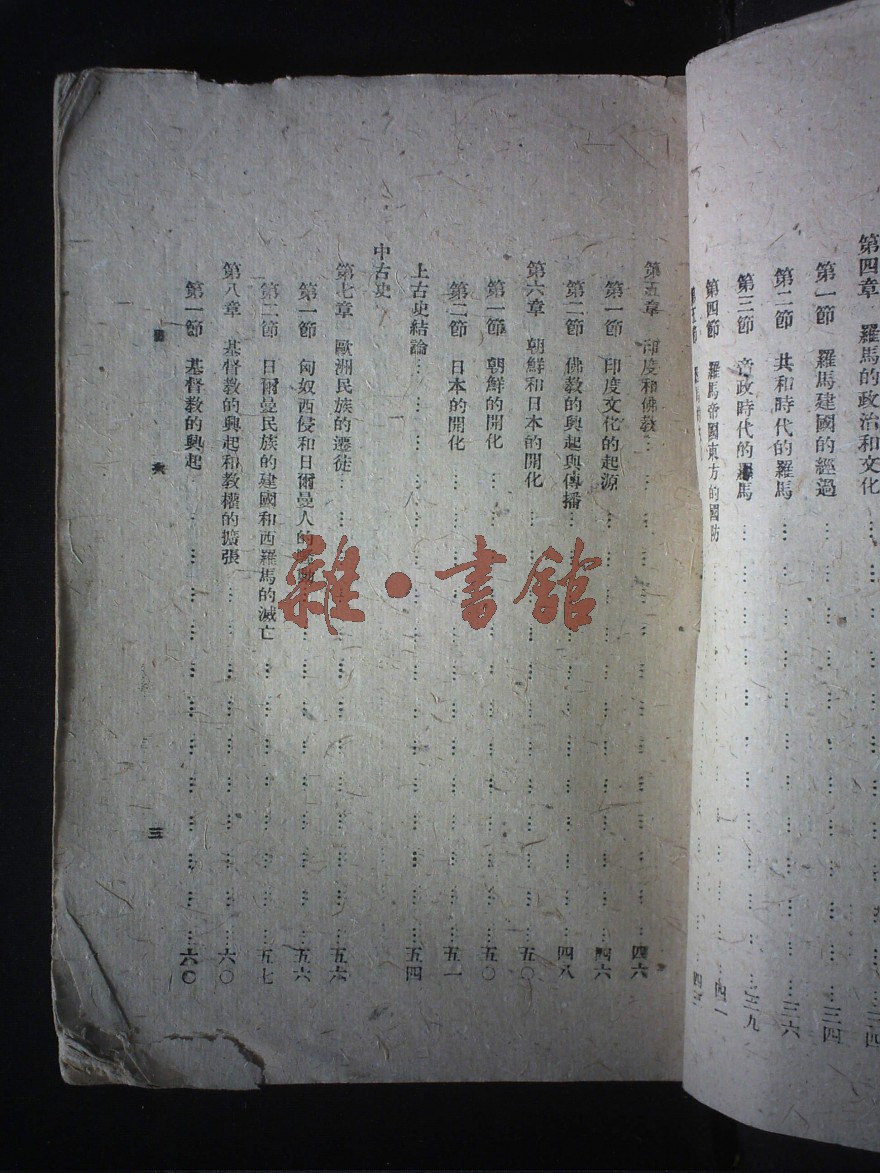 第四章 羅馬的政治和文化……三四
第一節 羅馬建國的經過……三四
第二節 共和時代的羅馬……三六
第三節 帝政時代的羅馬……三九
第四節 羅馬帝國東方的國防……四一
第五章 印度和佛教……四六
第一節 印度文化的起源……四六
第二節 佛教的興起與傳播……四八
第六章 朝鮮和日本的開化……五〇
第一節 朝鮮的開化……五〇
第二節 日本的開化……五一
上古史結論……五四
中古史
第七章 歐洲民族的遷徙……五六
第一節 匈奴西侵和日爾曼人的……五六
第二節 日爾曼民族的建國和西羅馬的滅亡……五七
第八章 基督教的興起和教權的擴張……六〇
第一節 基督教的興起……六〇
三
雜·書館